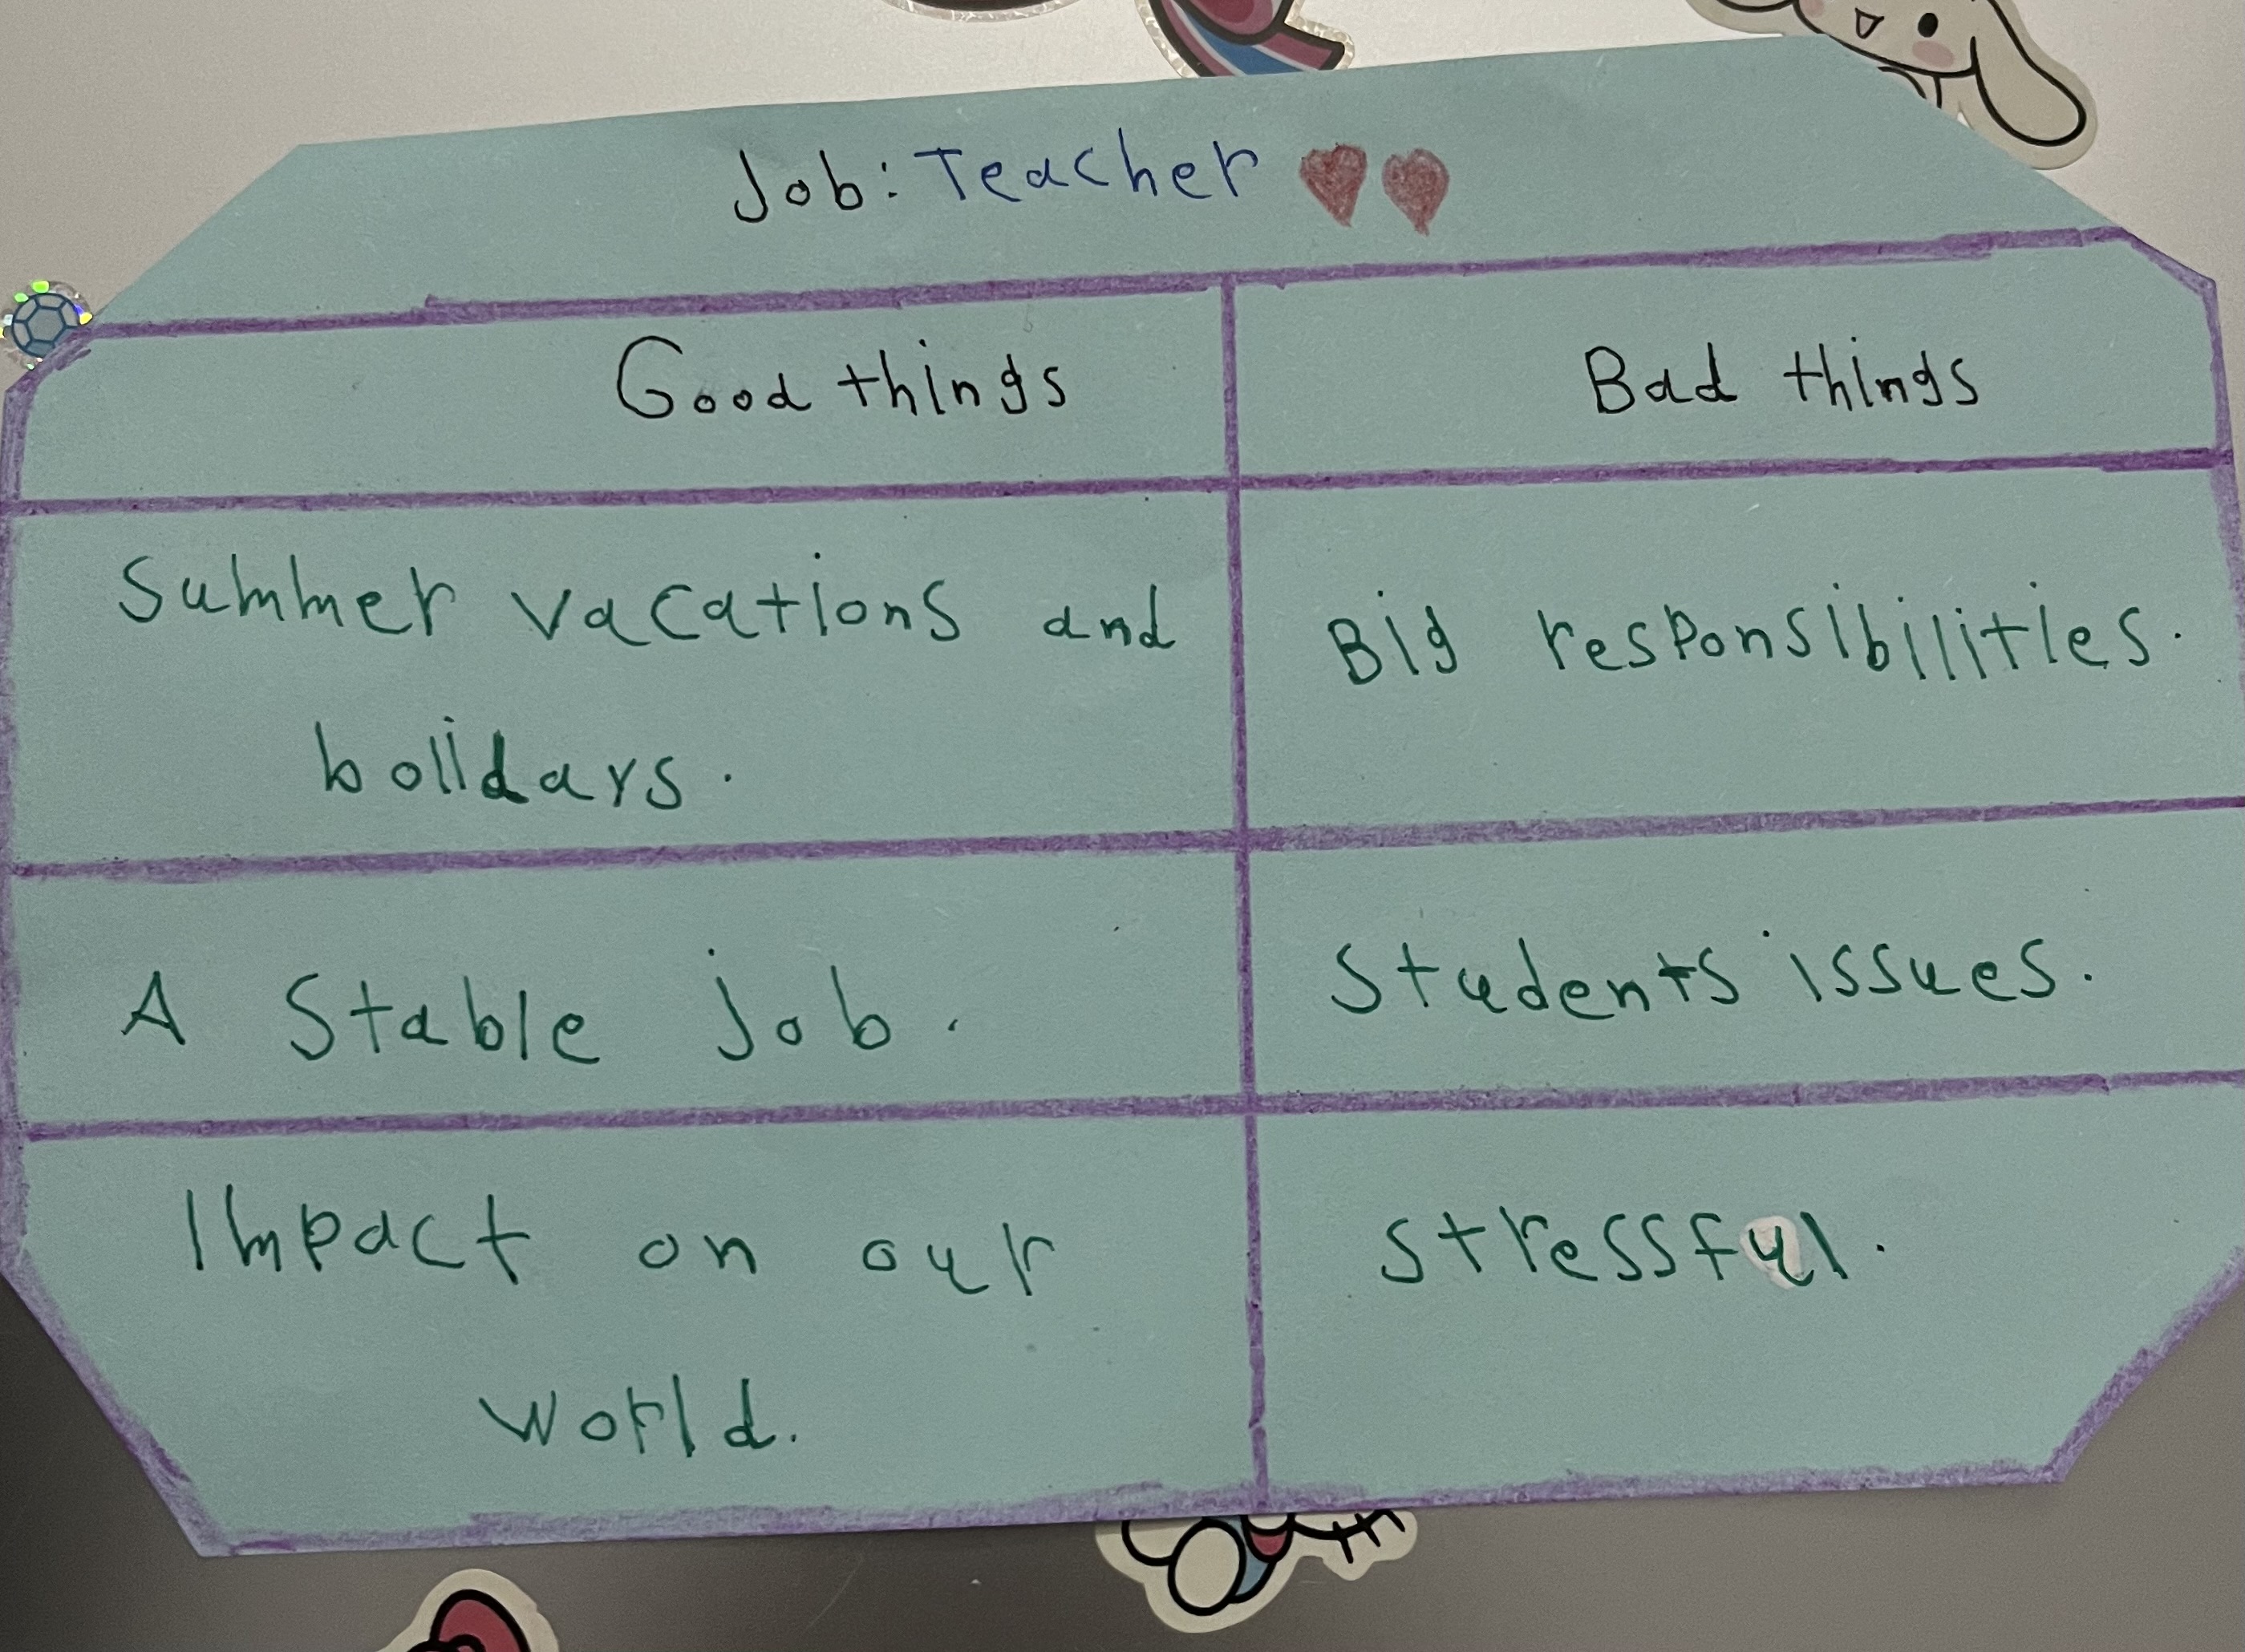 Job: Teacher
Good things
Bad things
Summer vacations and
holidays.
Big responsibilities.
A Stable job.
Students issues.
Impact on our
world.
stressful.